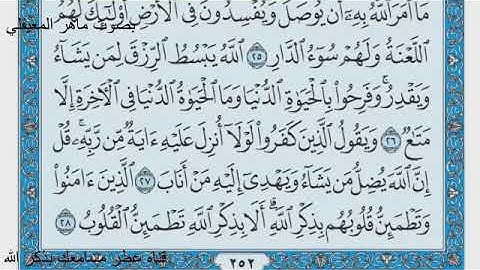 مَا أَمَرَ اللَّهُ بِهِۦٓ أَن يُوصَلَ وَيُفْسِدُونَ فِى الْأَرْضِ أُوْلَٰٓئِكَ لَهُمُ
بصوت ماهر المعيقلي
اللَّعْنَةُ وَلَهُمْ سُوٓءُ الدَّارِ ٢٥ اللَّهُ يَبْسُطُ الرِّزْقَ لِمَن يَشَآءُ
وَيَقْدِرُ وَفَرِحُوا۟ بِالْحَيَوٰةِ الدُّنْيَا وَمَا الْحَيَوٰةُ الدُّنْيَا فِى الْءَاخِرَةِ إِلَّا
مَتَٰعٌ ٢٦ وَيَقُولُ الَّذِينَ كَفَرُوا۟ لَوْلَآ أُنزِلَ عَلَيْهِ ءَايَةٌ مِّن رَّبِّهِۦ قُلْ
إِنَّ اللَّهَ يُضِلُّ مَن يَشَآءُ وَيَهْدِىٓ إِلَيْهِ مَنْ أَنَابَ ٢٧ الَّذِينَ ءَامَنُوا۟
وَتَطْمَئِنُّ قُلُوبُهُم بِذِكْرِ اللَّهِ أَلَا بِذِكْرِ اللَّهِ تَطْمَئِنُّ الْقُلُوبُ ٢٨
٢٥٢
قناه عطر مسامعك بذكر الله